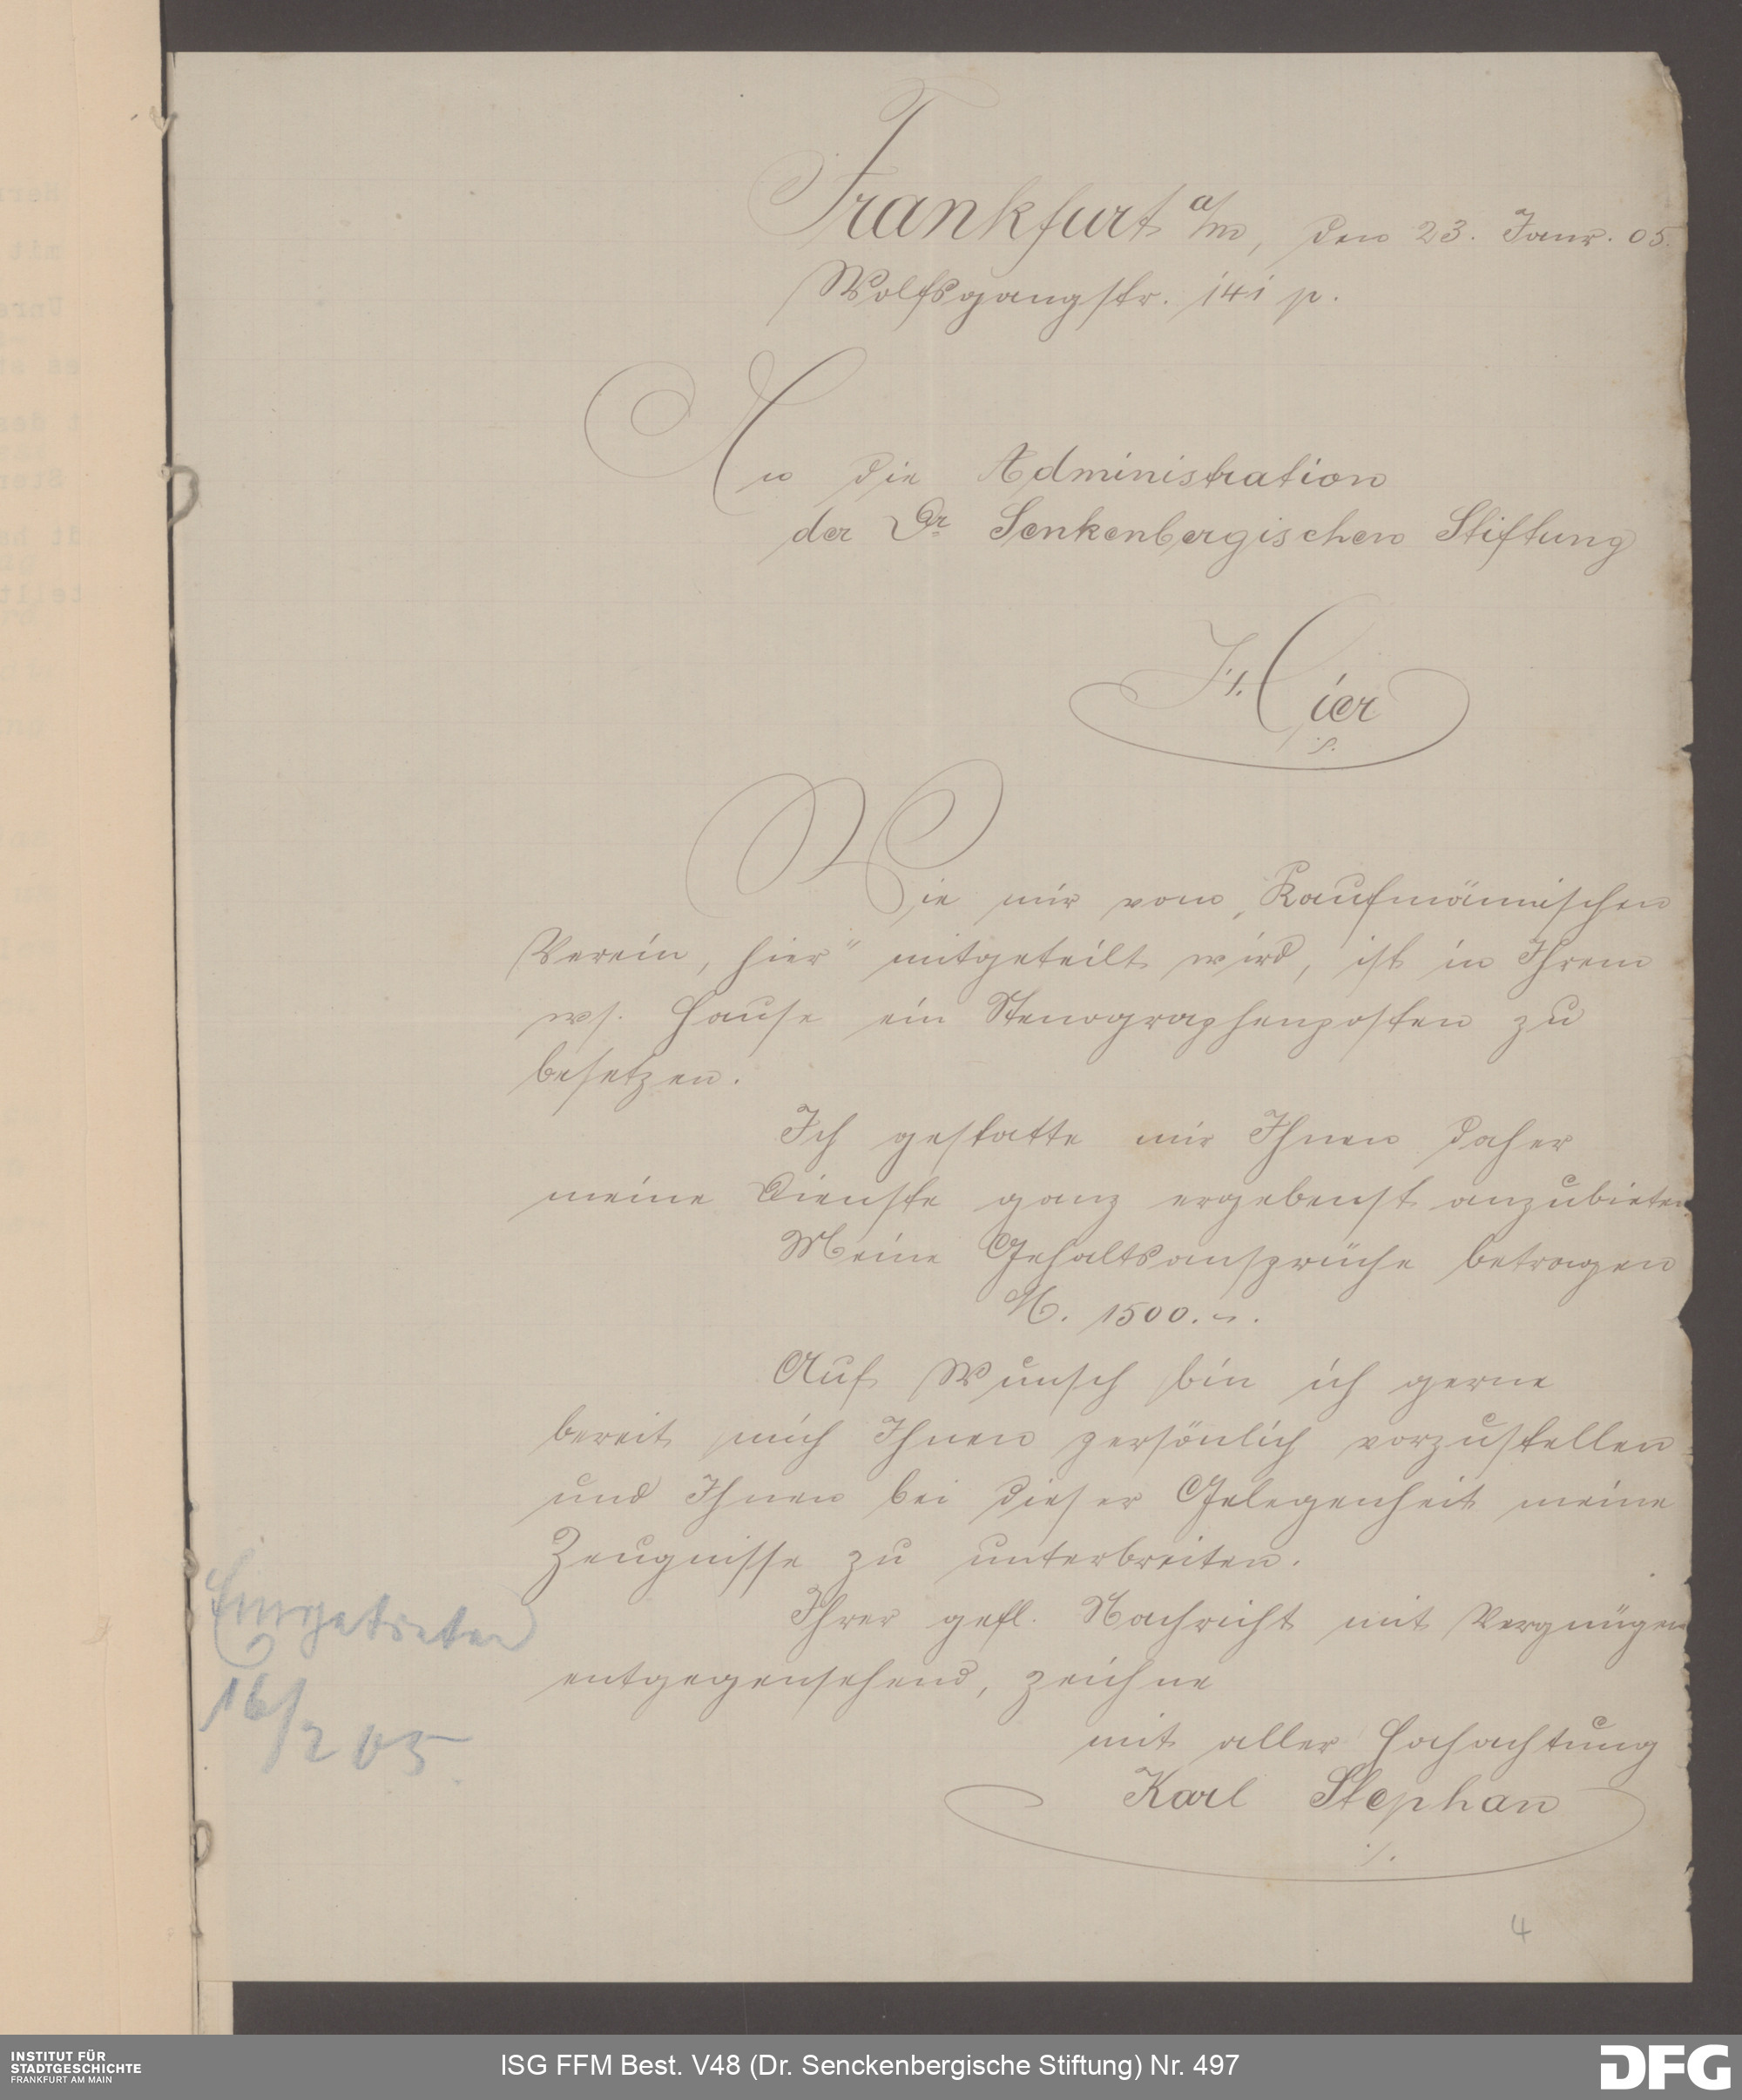 Frankfurt a/m, den 23. Janr. 05.
Wolfsgangstr. 141 p.
An die Administration
der Dr. Senkenbergischen Stiftung
Hier
Wie mir vom „Kaufmännischen
Verein, hier" mitgeteilt wird, ist in Ihrem
ws. Hause ein Stenographenposten zu
besetzen.
Ich gestatte mir Ihnen daher
meine Dienste ganz ergebenst anzubieten
Meine Gehaltsansprüche betragen
M. 1500.-.
Auf Wunsch bin ich gerne
bereit mich Ihnen persönlich vorzustellen
und Ihnen bei dieser Gelegenheit meine
Zeugnisse zu unterbreiten.
Ihrer gefl. Nachricht mit Vergnügen
entgegensehend, zeichne
mit aller Hochachtung
Karl Stephan
Eingetreten
16/2 05
4
INSTITUT FÜR
STADTGESCHICHTE
FRANKFURT AM MAIN
ISG FFM Best. V48 (Dr. Senckenbergische Stiftung) Nr. 497
DFG